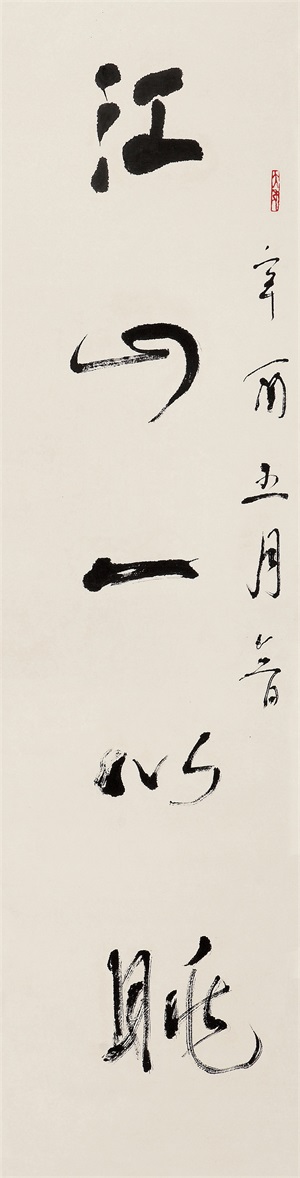 辛酉五月
江山一以眺